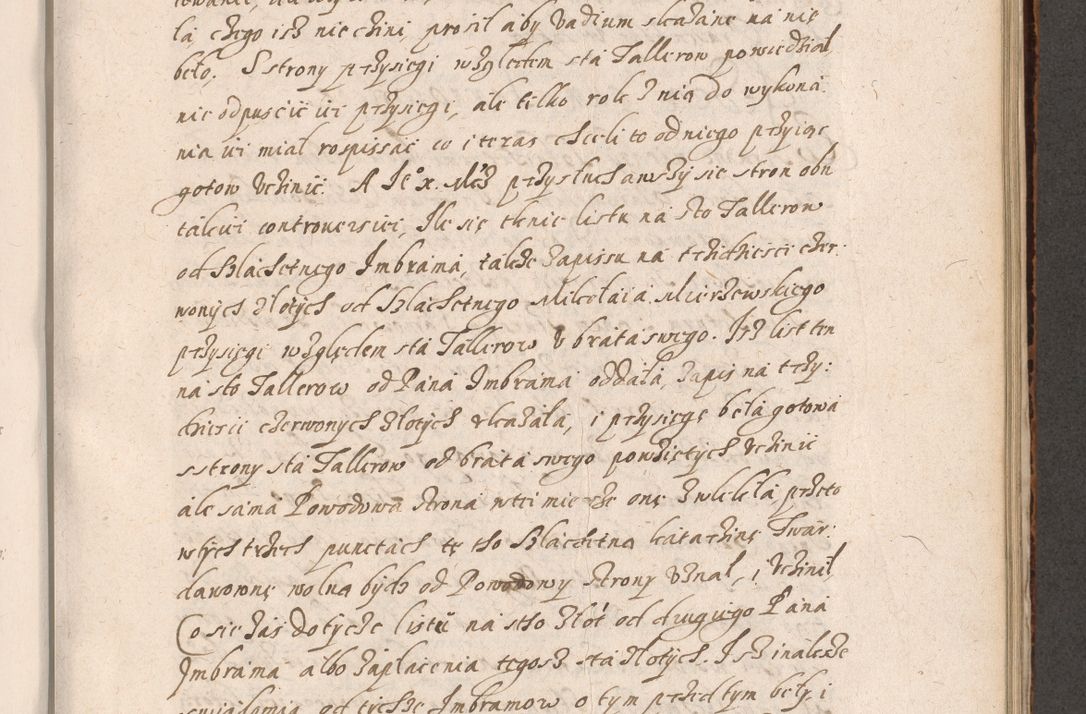 la, czego isz nie czini, prosil aby vadium skazane na nię
beło. S strony przysięgi względem sta Tallerow powiedział
nie odpuscic iei przysięgi, ale tilko rolę z nią do wykona:
nia iei mial rospissac co i teras chceli to od niego przyiąc
gotow vczinic. A Je° x. Mcz przysluchawszy się stron obu
takiei controuersiei, Ile się tknie listu na sto Tallerow
od Slachetnego Imbrama, także zapissu na trzidziesci czer:
wonych zlotych od Slachetnego Mikołaia Mierzewskiego
przysięgi względem sta Tallerow v brata swego. Isz list ten
na sto Tallerow od Pana Imbrama oddała, zapis na trzy:
dziesci czerwonych zlotych vkazała, i przysięgę beła gotowa
s strony sta Tallerow od brata swego powziętych vczinic
ale sama Powodowa strona w tei mierze onę zwlekła, przeto
w tych trzech punctach tę tho Slachetną Katarzinę Twar:
dawownę wolną bydz od Powodowy strony vznal, i vczinil,
Co sie zas dotycze listu na stho złot od drugiego Pana
Imbrama albo zapłacenia tegosz sta zlotych. Isz inalesze
od tychże Imbramow o tym przed tym beły i